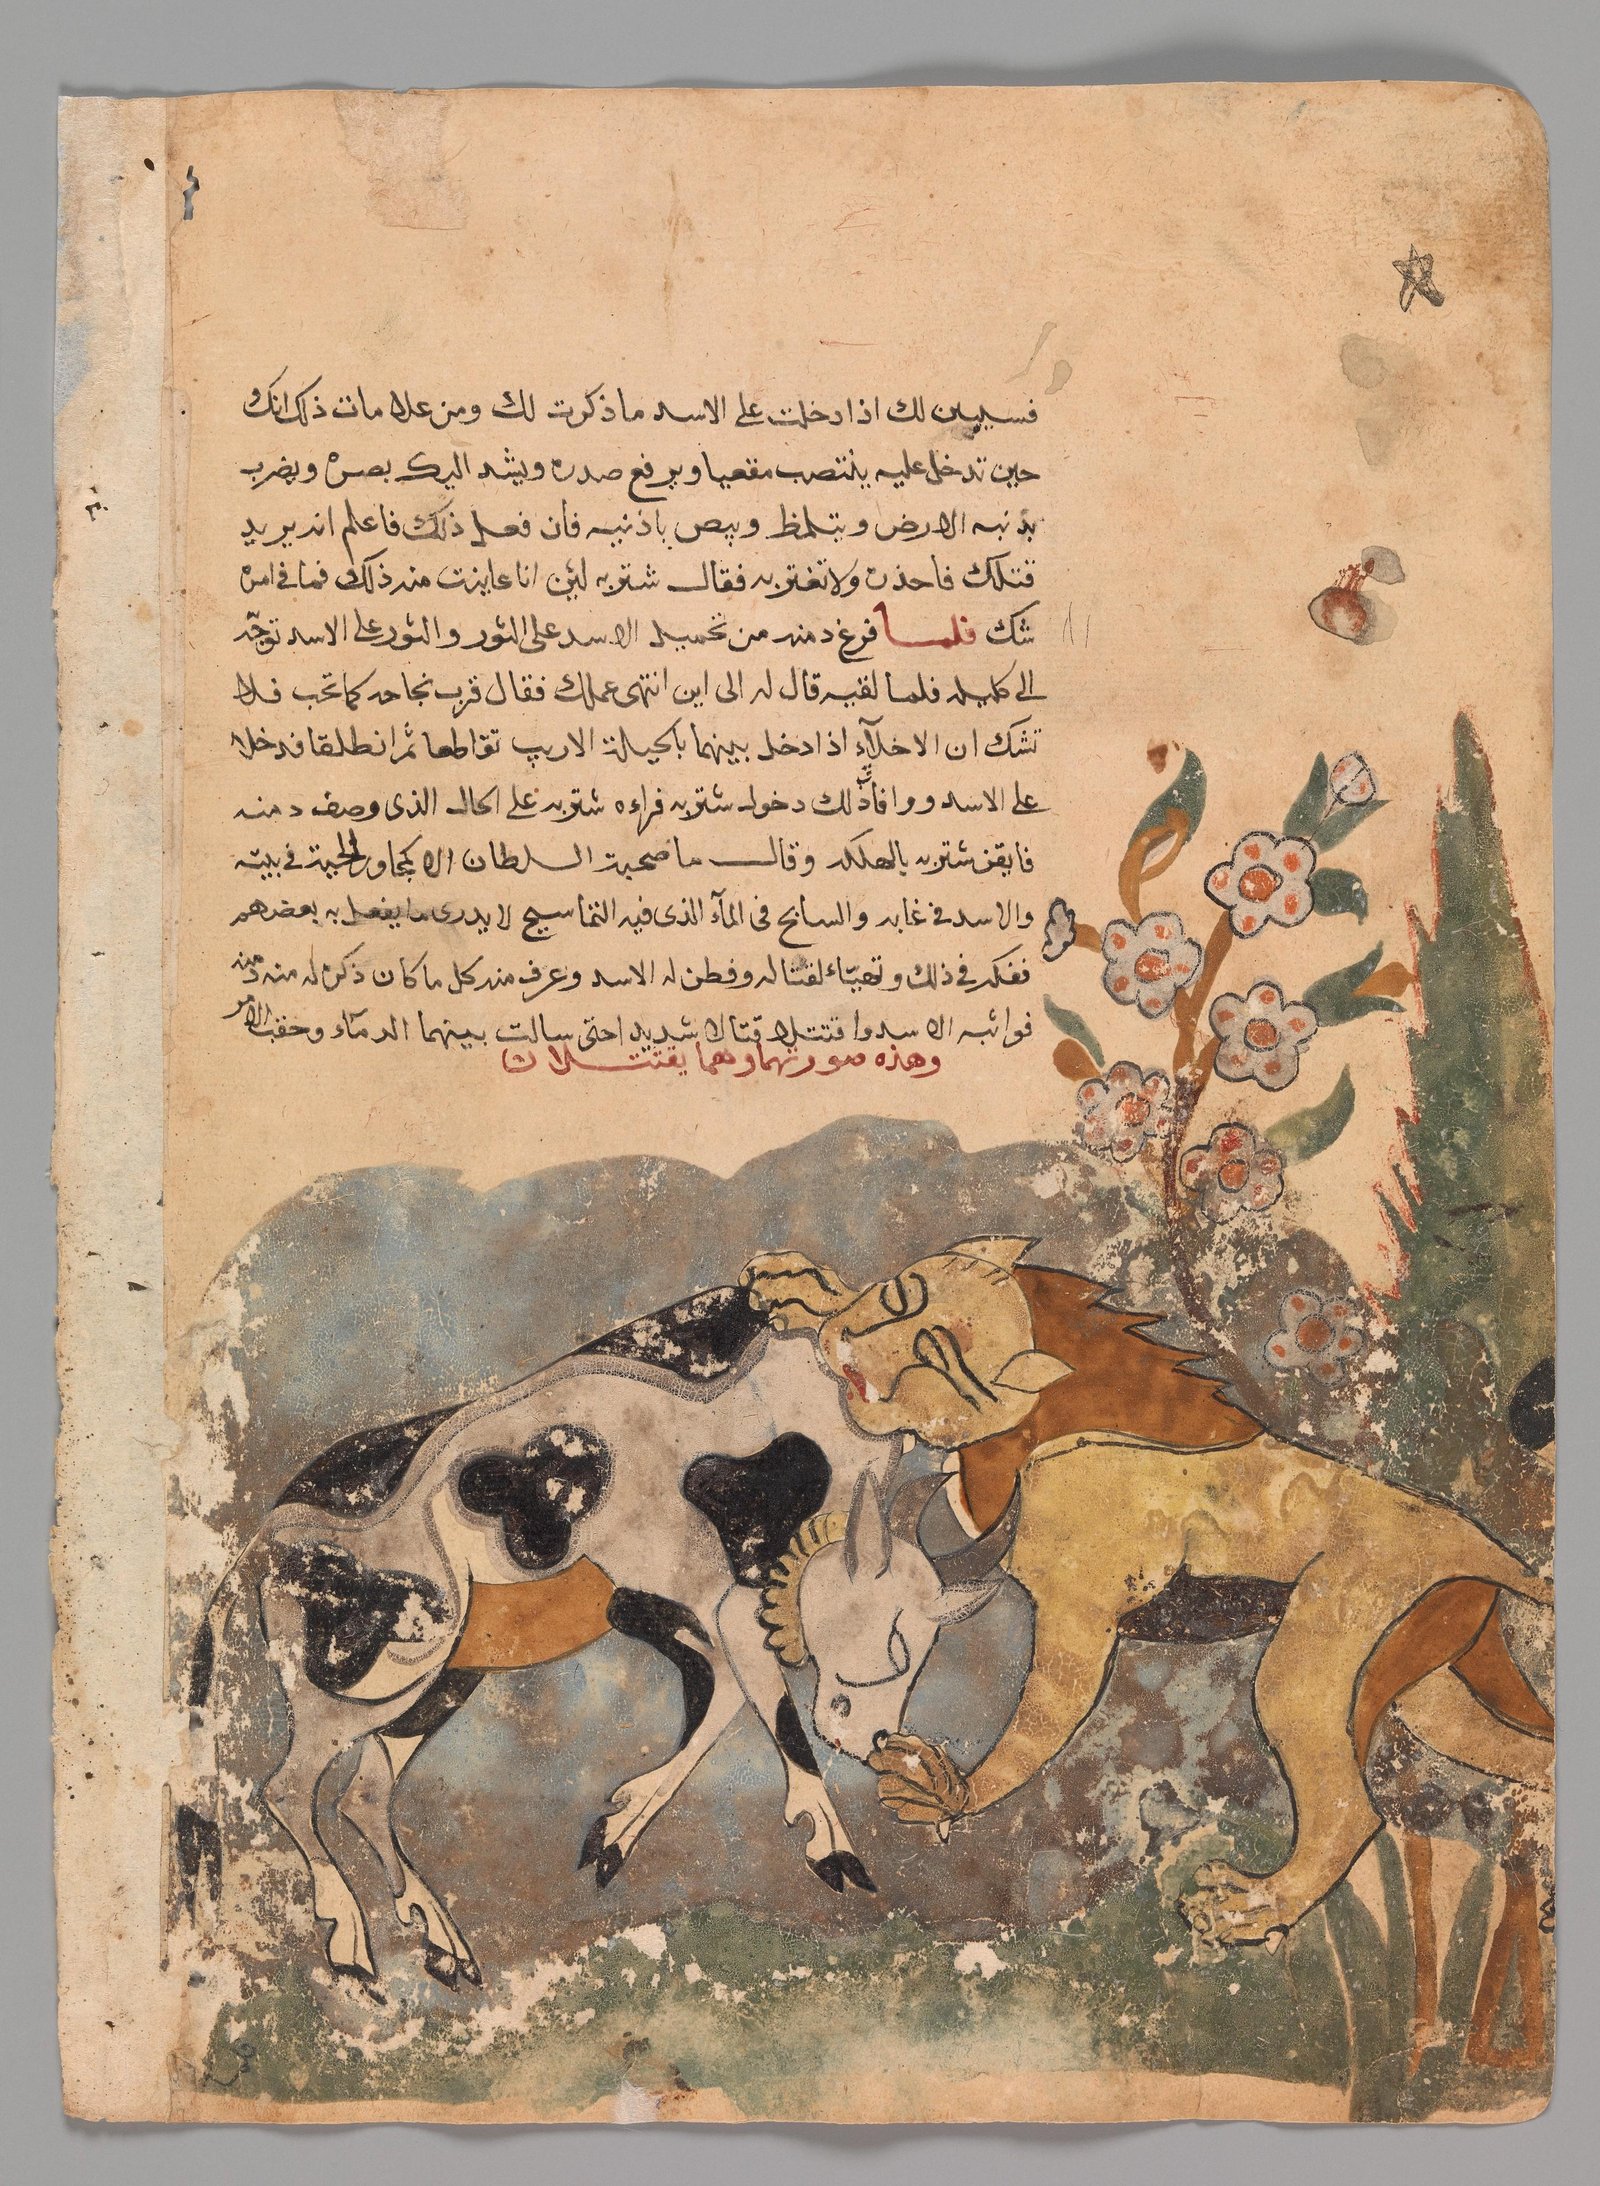 فسيبين لك اذا دخلت على الاسد ما ذكرت لك ومن علامات ذلك انك
حين تدخل عليه ينتصب مقعيا ويرفع صدره ويشد اليك بصره ويضرب
بذنبه الارض ويتلمظ ويبص باذنيه فان فعل ذلك فاعلم انه يريد
قتلك فاحذره ولا تغتر به فقال شتربه لئن انا عاينت منه ذلك فما في امره
شك فلما فرغ دمنه من تحميل الاسد على الثور والثور على الاسد توجّه
الى كليله فلما لقيه قال له الى اين انتهى عملك فقال قرب نجاحه كما تحب فلا
تشك ان الاخلآء اذا دخل بينهما بالحيلة الاريب تقاطعا ثم انطلقا فدخلا
على الاسد ووافا ذلك دخول شتربه فراءه شتربه على الحال الذى وصف دمنه
فايقن شتربه بالهلكه وقال ما صحبة السلطان الا كمجاور الحية في بيته
والاسد في غابه والسابح فى المآء الذى فيه التماسيح لا يدرى ما يفعل به بعضهم
ففكر في ذلك وتهيّاء لقتاله وفطن له الاسد وعرف منه كل ما كان ذكره له منه دمنه
فواثبه الاسد واقتتلا قتالا شديدا حتى سالت بينهما الدمآء وحقب الامر
وهذه صورتهما وهما يقتتلان